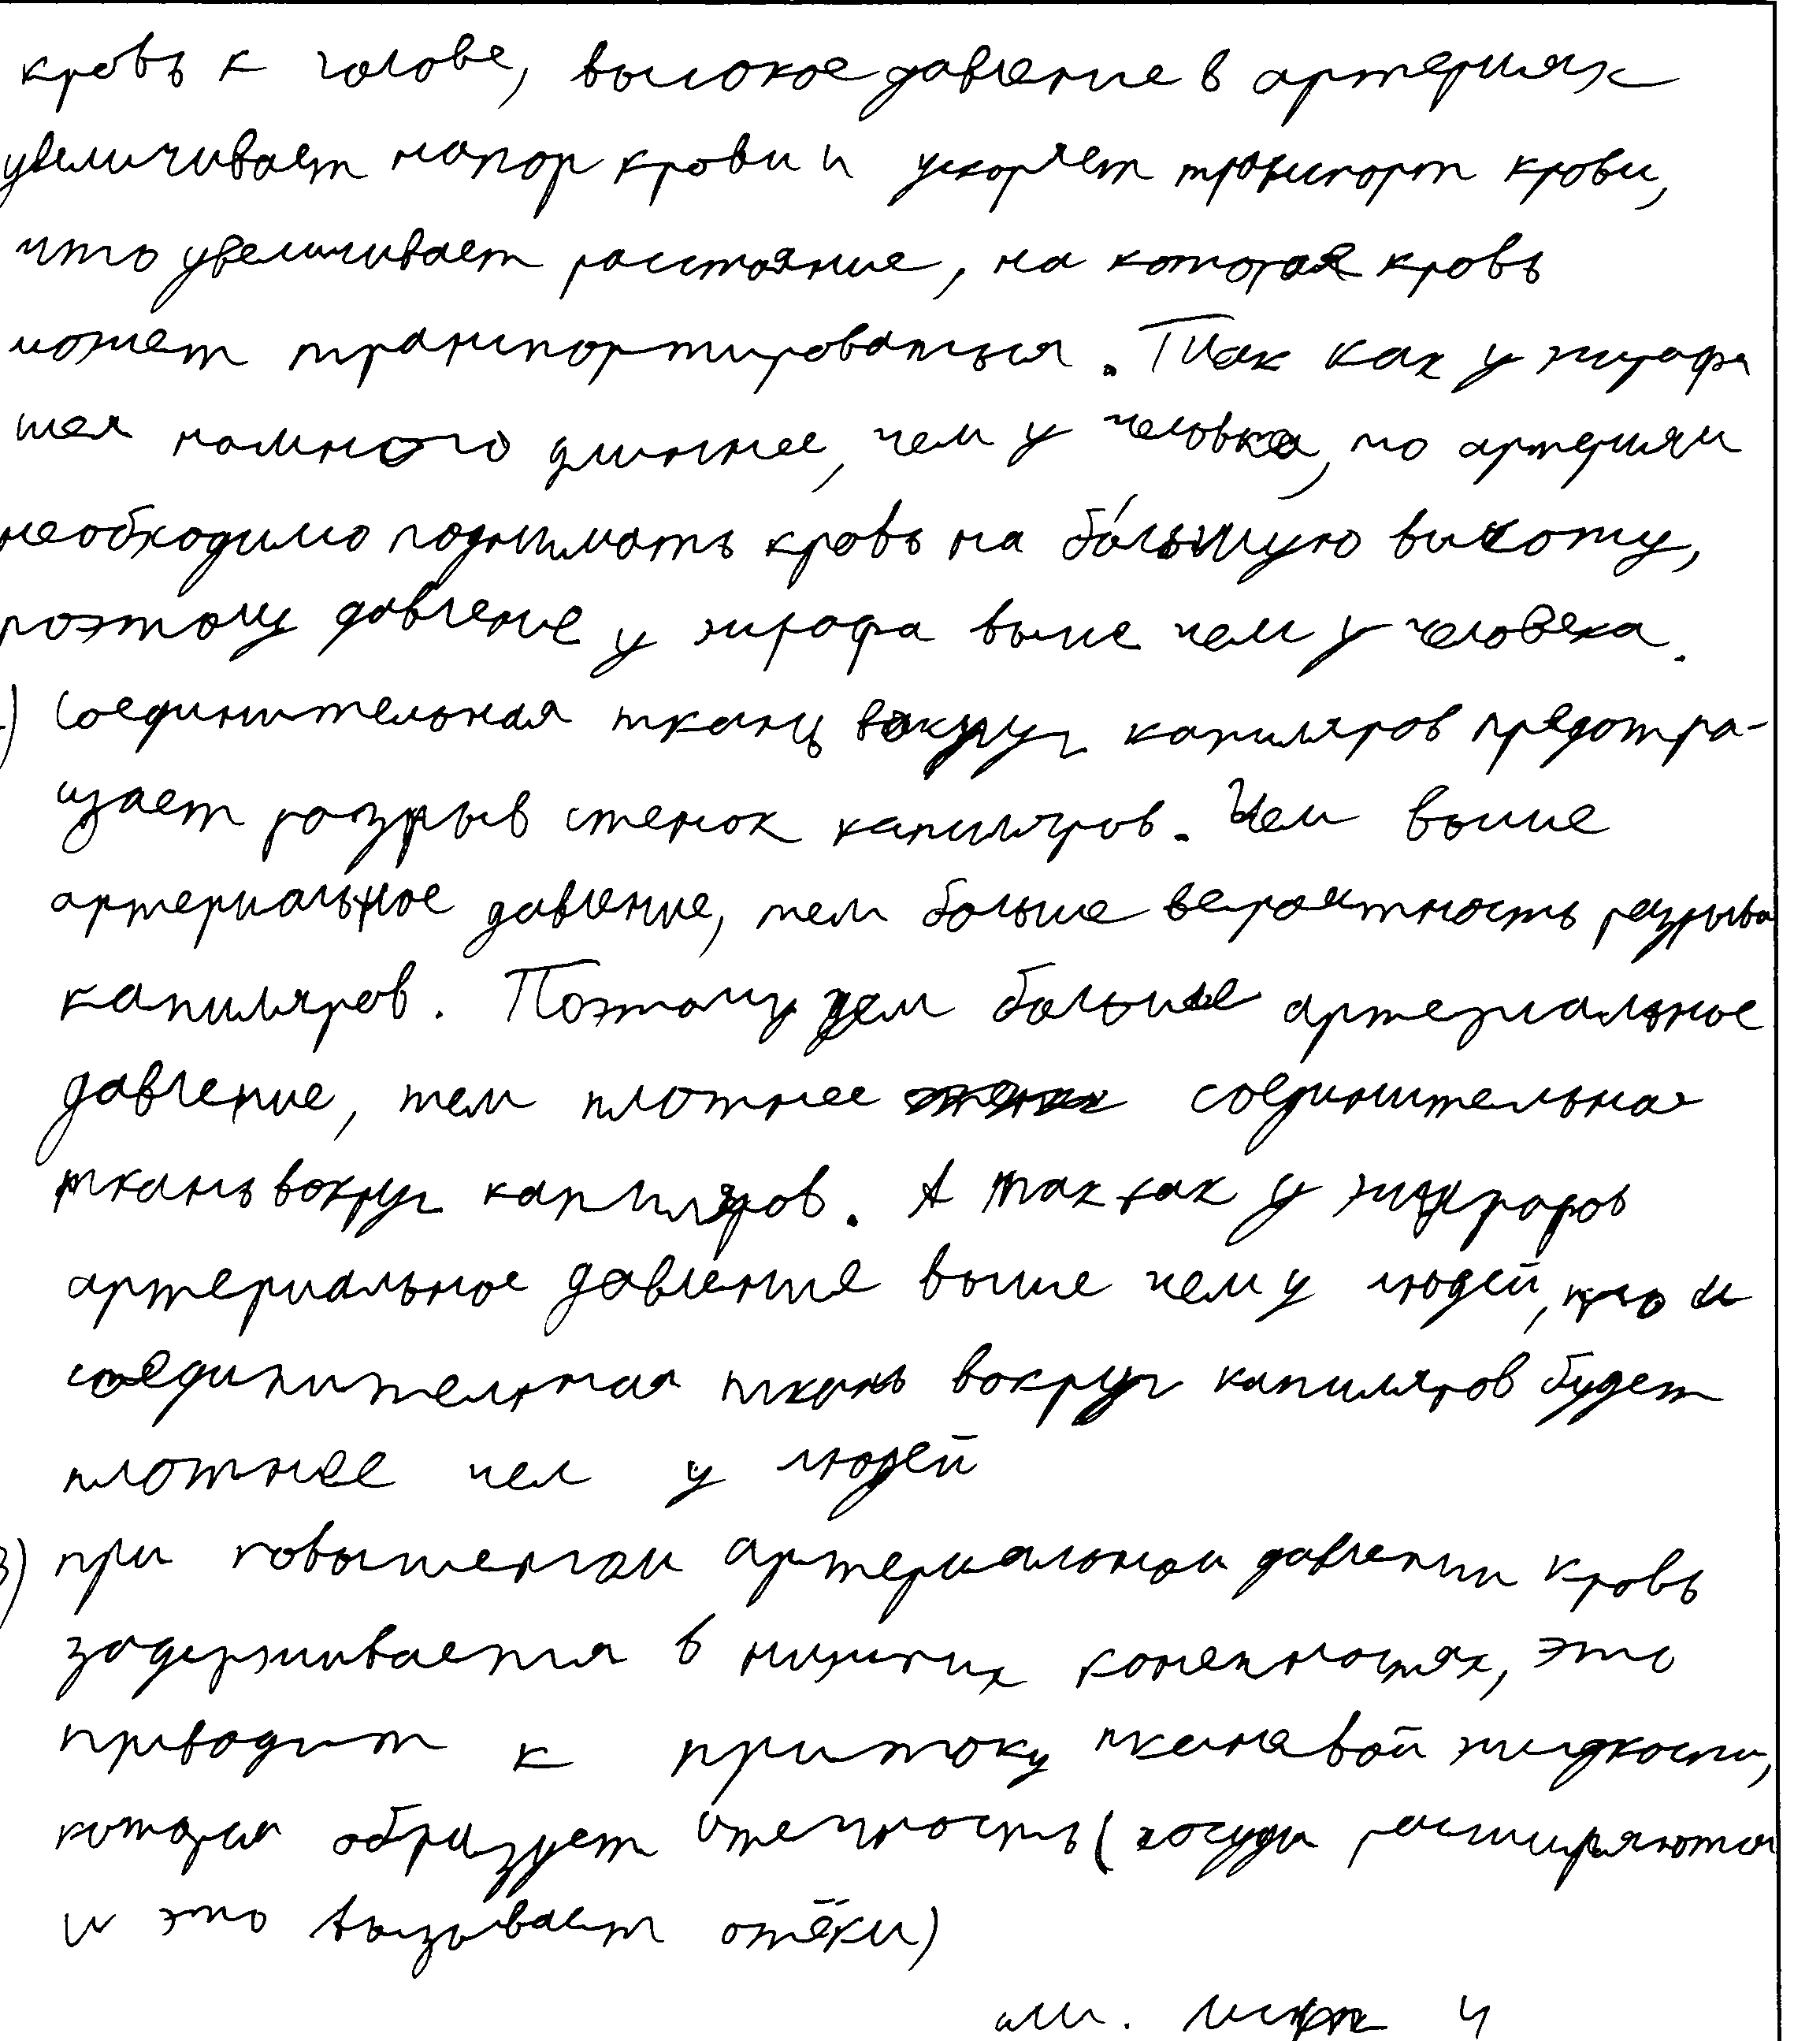 кровь к голове, высокое давление в артериях
увеличивает напор крови и ускоряет транспорт крови,
что увеличивает расстояние, на которая кровь
может транспортироваться. Так как у жирафа
шея намного длиннее, чем у человка, по артериям
необходимо поднимать кровь на бо́льшую высоту,
поэтому давление у жирафа выше чем у человека.
) Соединительная ткань вокруг капиляров предотра-
щает разрыв стенок капиляров. Чем выше
артериальное давление, тем больше вероятность разрыва
капиляров. Поэтому чем больше артериальное
давление, тем плотнее соединительная
ткань вокруг капиляров. А так как у жирафов
артериальное давление выше чем у людей, то и
соединительная ткань вокруг капиляров будет
плотнее чем у людей
3) при повышенном артериальном давлении кровь
задерживается в нижних конечностях, это
приводит к притоку тканевой жидкости,
которая образует отечность (сосуды расширяются
и это вызывает отёки)
см. лист 4